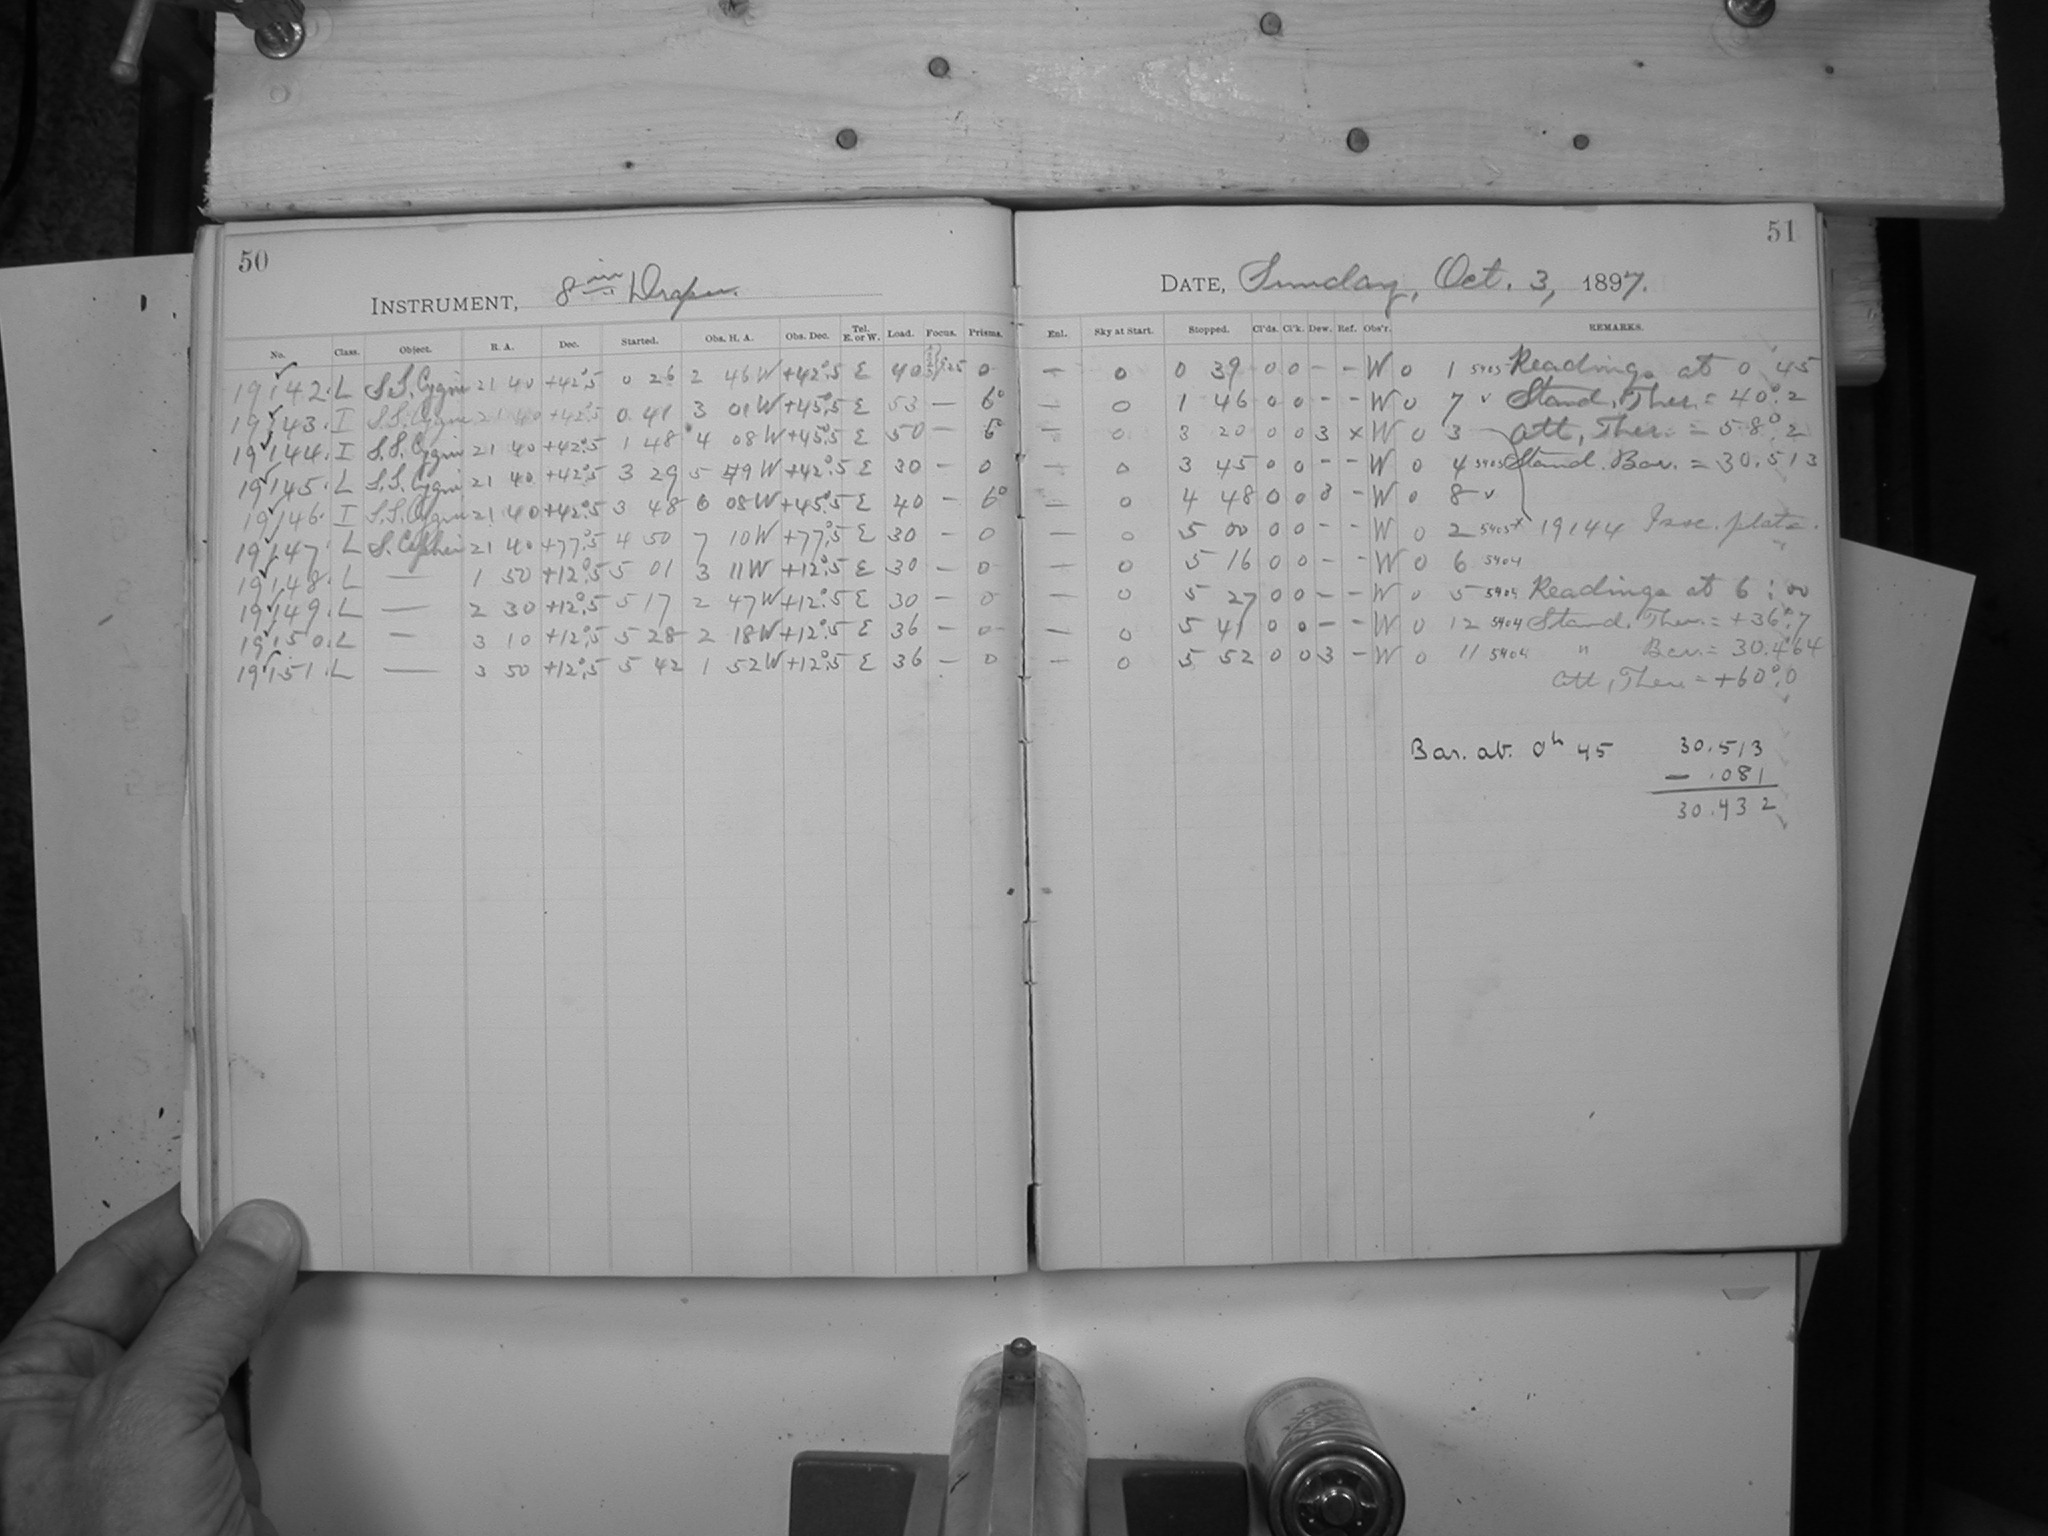 50
INSTRUMENT, 8 in Draper.
No. Class. Object. R. A. Dec. Started. Obs. H. A. Obs. Dec. Tel. E. or W. Load. Focus. Prisms.
19142. L S.S. Cygni 21 40 +42°.5 0 26 2 46 W +42°.5 E 40 0
19143. I S.S. Cygni 21 40 +42°.5 0 41 3 01 W +45°.5 E 53 — 6°
19144. I S.S. Cygni 21 40 +42°.5 1 48 4 08 W +45°.5 E 50 — 6°
19145. L S.S. Cygni 21 40 +42°.5 3 29 5 49 W +42°.5 E 30 — 0
19146. I S.S. Cygni 21 40 +42°.5 3 48 6 08 W +45°.5 E 40 — 6°
19147. L S. Cephei 21 40 +77°.5 4 50 7 10 W +77°.5 E 30 — 0
19148. L — 1 50 +12°.5 5 01 3 11 W +12°.5 E 30 — 0
19149. L — 2 30 +12°.5 5 17 2 47 W +12°.5 E 30 — 0
19150. L — 3 10 +12°.5 5 28 2 18 W +12°.5 E 36 — 0
19151. L — 3 50 +12°.5 5 42 1 52 W +12°.5 E 36 — 0
51
DATE, Sunday, Oct. 3, 1897.
Enl. Sky at Start. Stopped. Cl'ds. Cl'k. Dew. Ref. Obs'r. REMARKS.
— 0 0 39 0 0 - - W 0 1 5405 Readings at 0 45
— 0 1 46 0 0 - - W 0 7 v Stand. Ther. = 40°.2
— 0 3 20 0 0 3 x W 0 3 Att. Ther. = 58°.2
— 0 3 45 0 0 - - W 0 4 5405 Stand. Bar. = 30.513
— 0 4 48 0 0 3 - W 0 8 v
— 0 5 00 0 0 - - W 0 2 5405 x 19144 Isoc. plate.
— 0 5 16 0 0 - - W 0 6 5404
— 0 5 27 0 0 - - W 0 5 5404 Readings at 6 : 00
— 0 5 41 0 0 - - W 0 12 5404 Stand. Ther. = +36°.7
— 0 5 52 0 0 3 - W 0 11 5404 " Bar. = 30.464
Att. Ther. = +60°.0
Bar. at. 0h 45 30.513
— .081
30.432